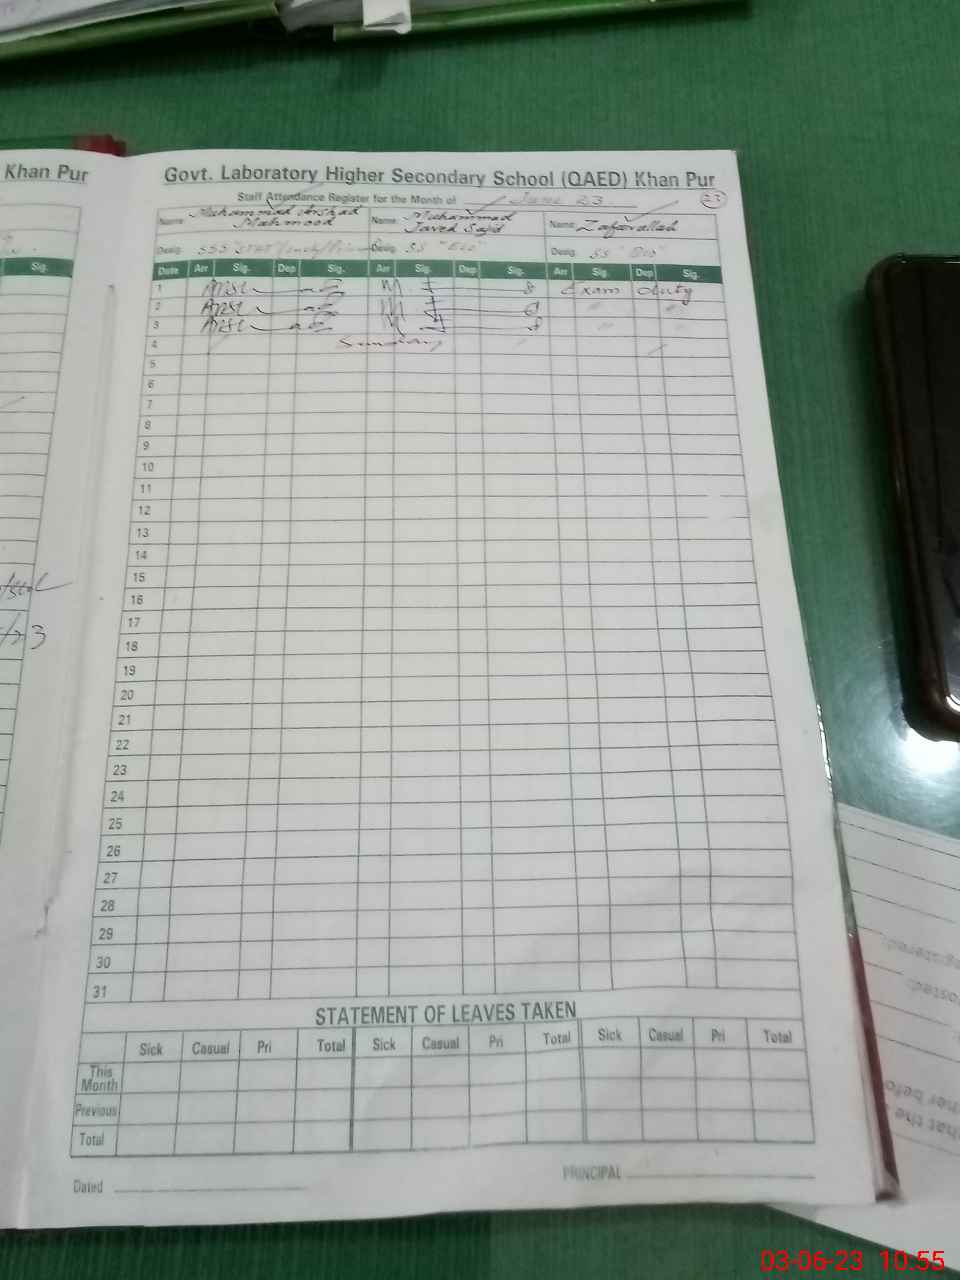 Khan Pur
Govt. Laboratory Higher Secondary School (QAED) Khan Pur
Staff Attendance Register for the Month of June 23
23
Name Muhammad Arshad Mahmood Name Muhammad Javed Sajid Name Zafarullah
Desig. SSS Desig. SS "Eco" Desig. SS "Eco"
Sig. Date Arr Sig. Dep Sig. Arr Sig. Dep Sig. Arr Sig. Dep Sig.
1 Exam duty
2 " "
3 " "
4 Sunday
5
6
7
8
9
10
11
12
13
14
15
16
17
18
19
20
21
22
23
24
25
26
27
28
29
30
31
STATEMENT OF LEAVES TAKEN
Sick Casual Pri Total Sick Casual Pri Total Sick Casual Pri Total
This Month
Previous
Total
Dated
PRINCIPAL
03-06-23 10.55